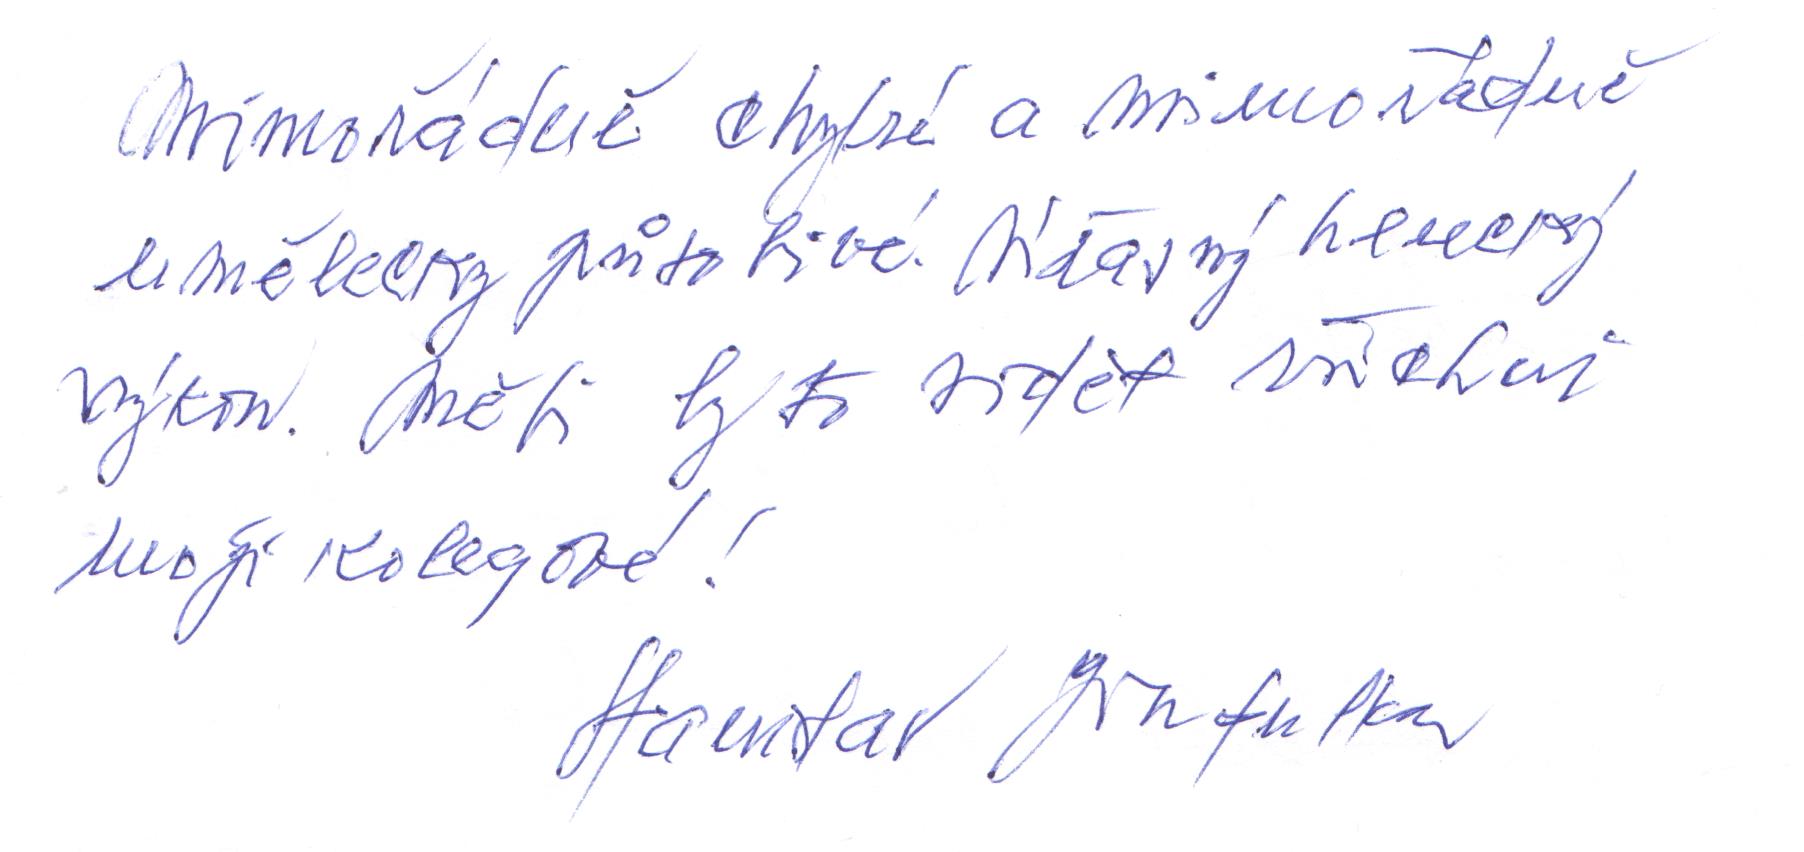 Mimořádně chytré a mimořádně
umělecky působivé. Nídavný herecký
výkon. Měli by to vidět všichni
moji kolegové!